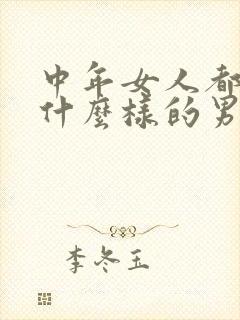 中年女人都
什麼樣的男
李冬玉